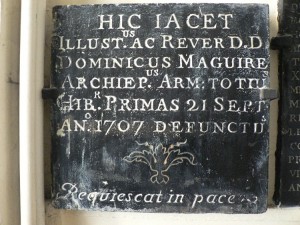 HIC IACET
ILLUSTUS AC REVER D.D
DOMINICUS MAGUIRE
ARCHIEPUS ARM: TOTIU
HIBR. PRIMAS 21 SEPT
ANO. 1707 DEFUNCTU
Requiescat in pace